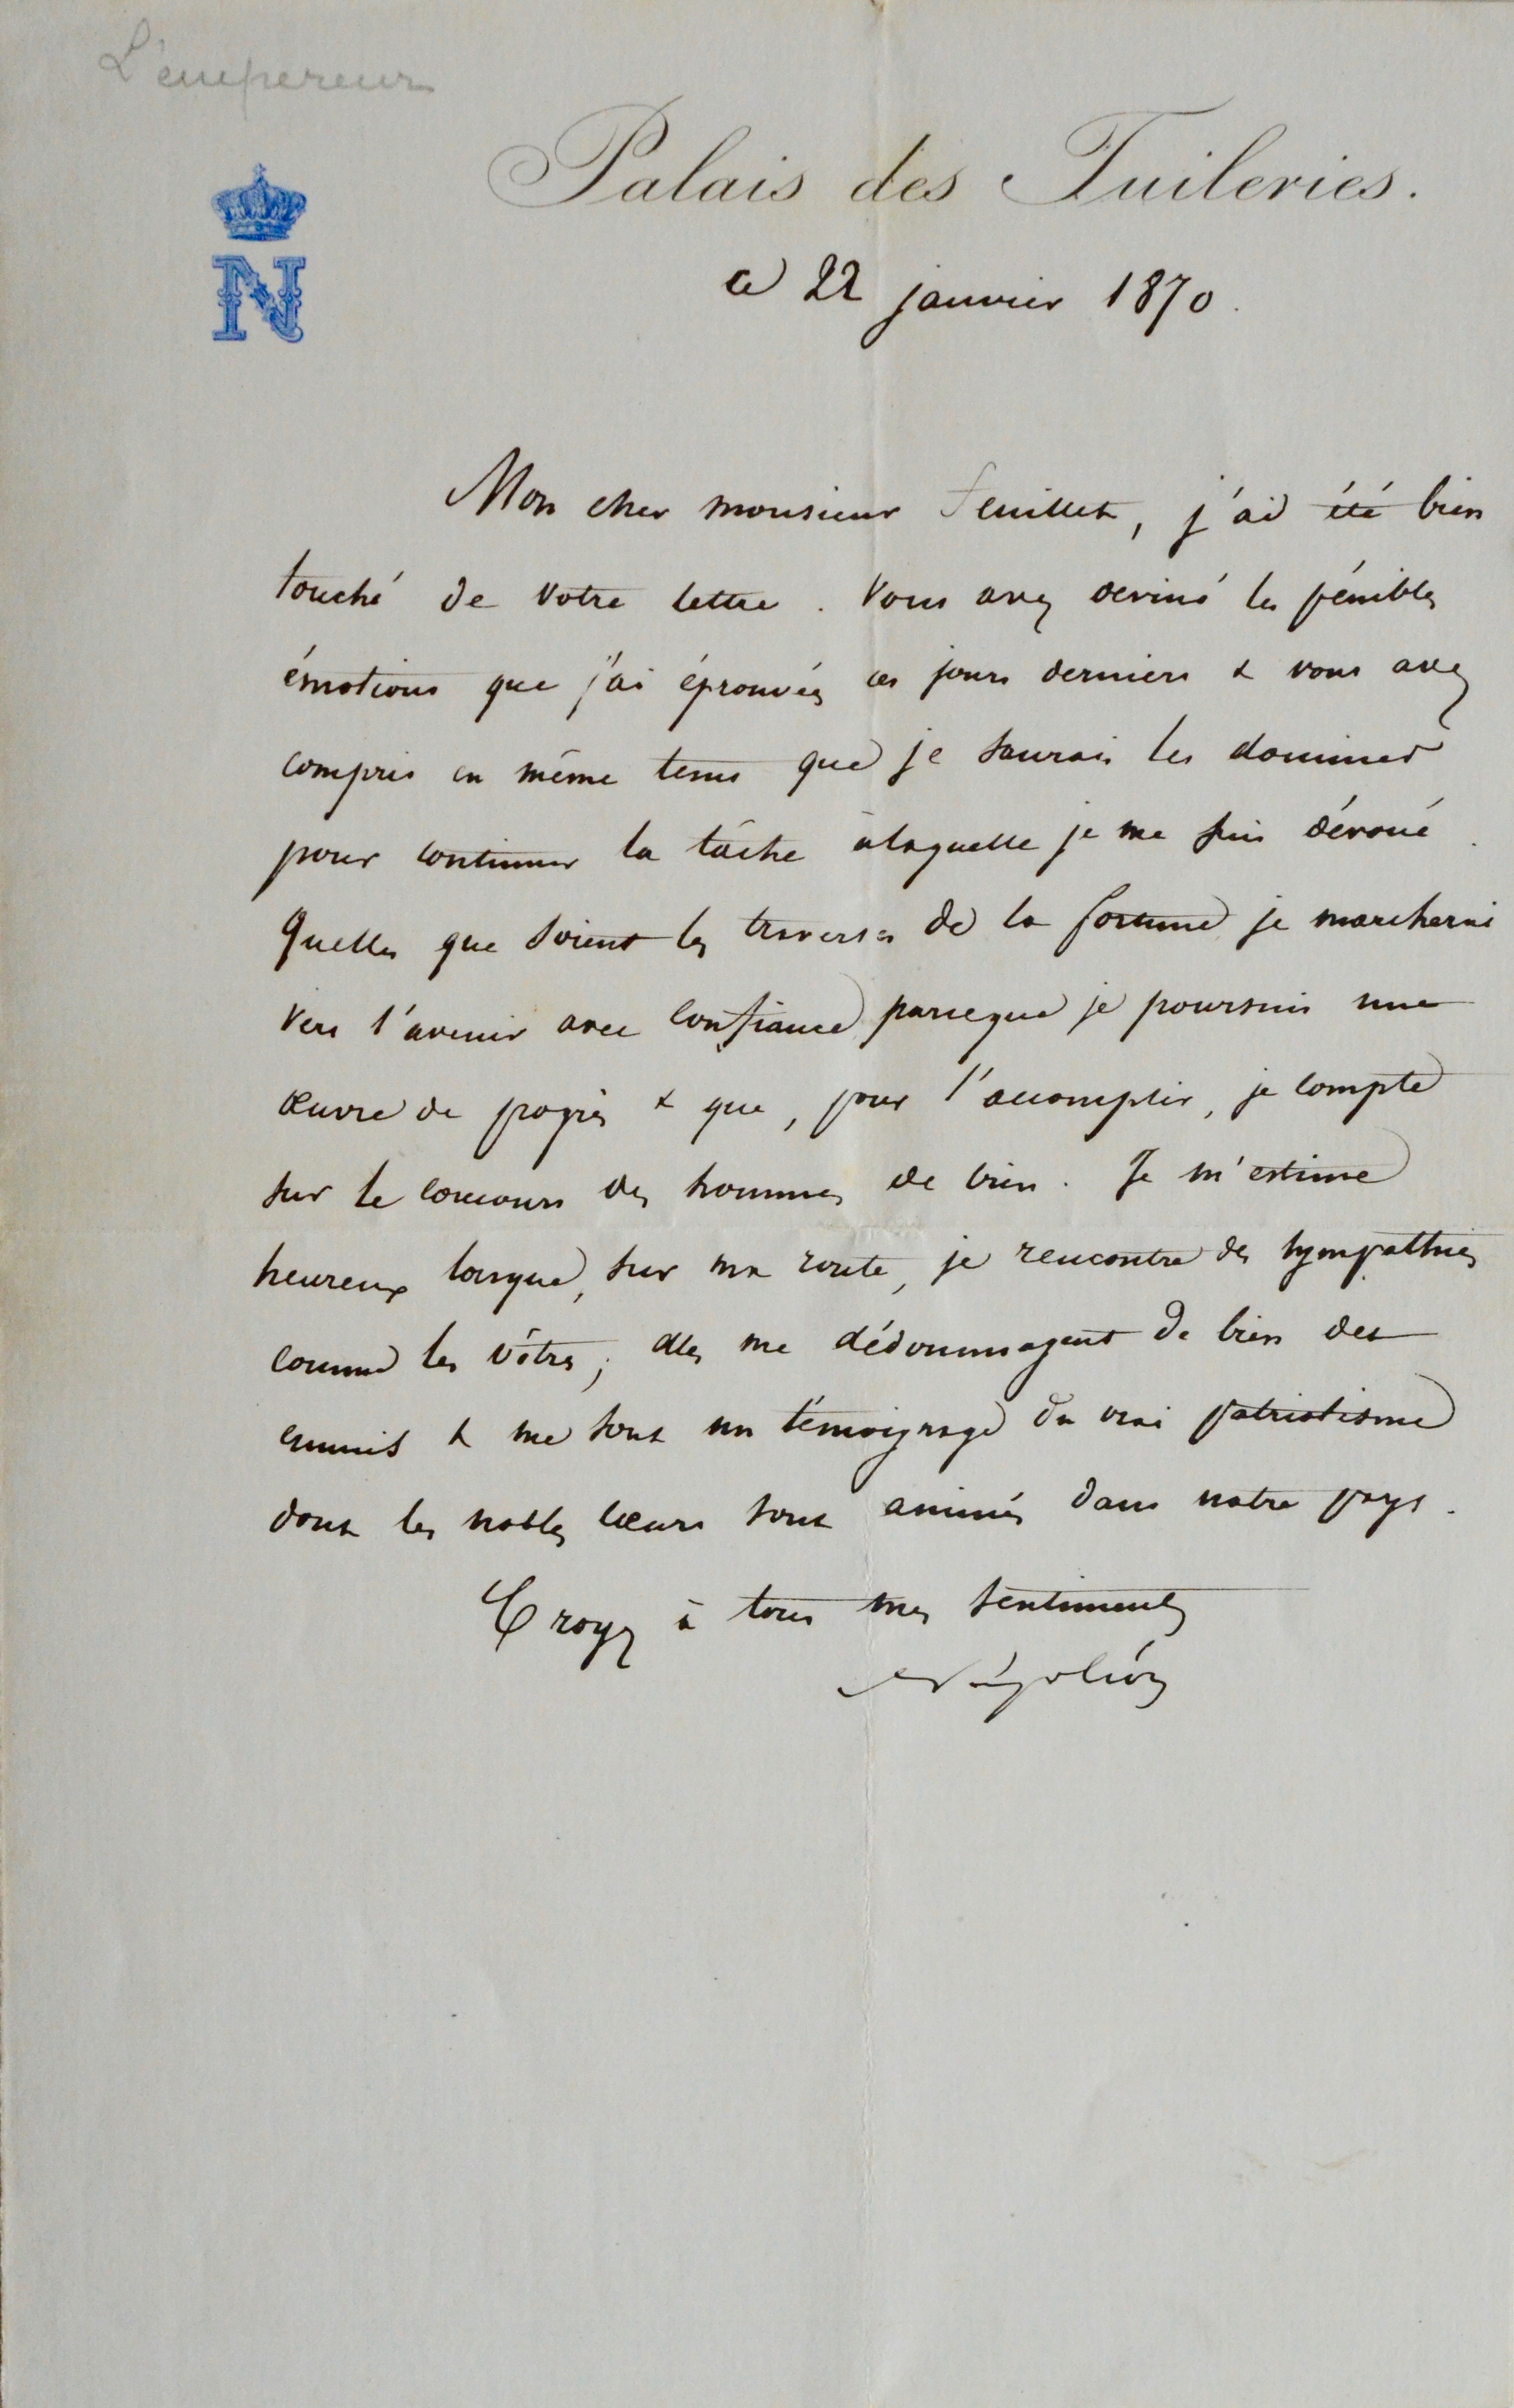 L'empereur
Palais des Tuileries.
N
ce 22 janvier 1870.
Mon cher monsieur Feuillet, j'ai été bien
touché de votre lettre. Vous avez deviné les pénibles
émotions que j'ai éprouvées ces jours derniers & vous avez
compris en même tems que je saurais les dominer
pour continuer la tâche à laquelle je me suis dévoué.
Quelles que soient les traverses de la fortune je marcherai
vers l'avenir avec confiance parceque je poursuis une
œuvre de progrès & que, pour l'accomplir, je compte
sur le concours des hommes de bien. Je m'estime
heureux lorsque, sur ma route, je rencontre des sympathies
comme les vôtres; elles me dédommagent de bien des
ennuis & me sont un témoignage du vrai patriotisme
dont les nobles cœurs sont animés dans notre pays.
Croyez à tous mes sentiments
Napoléon